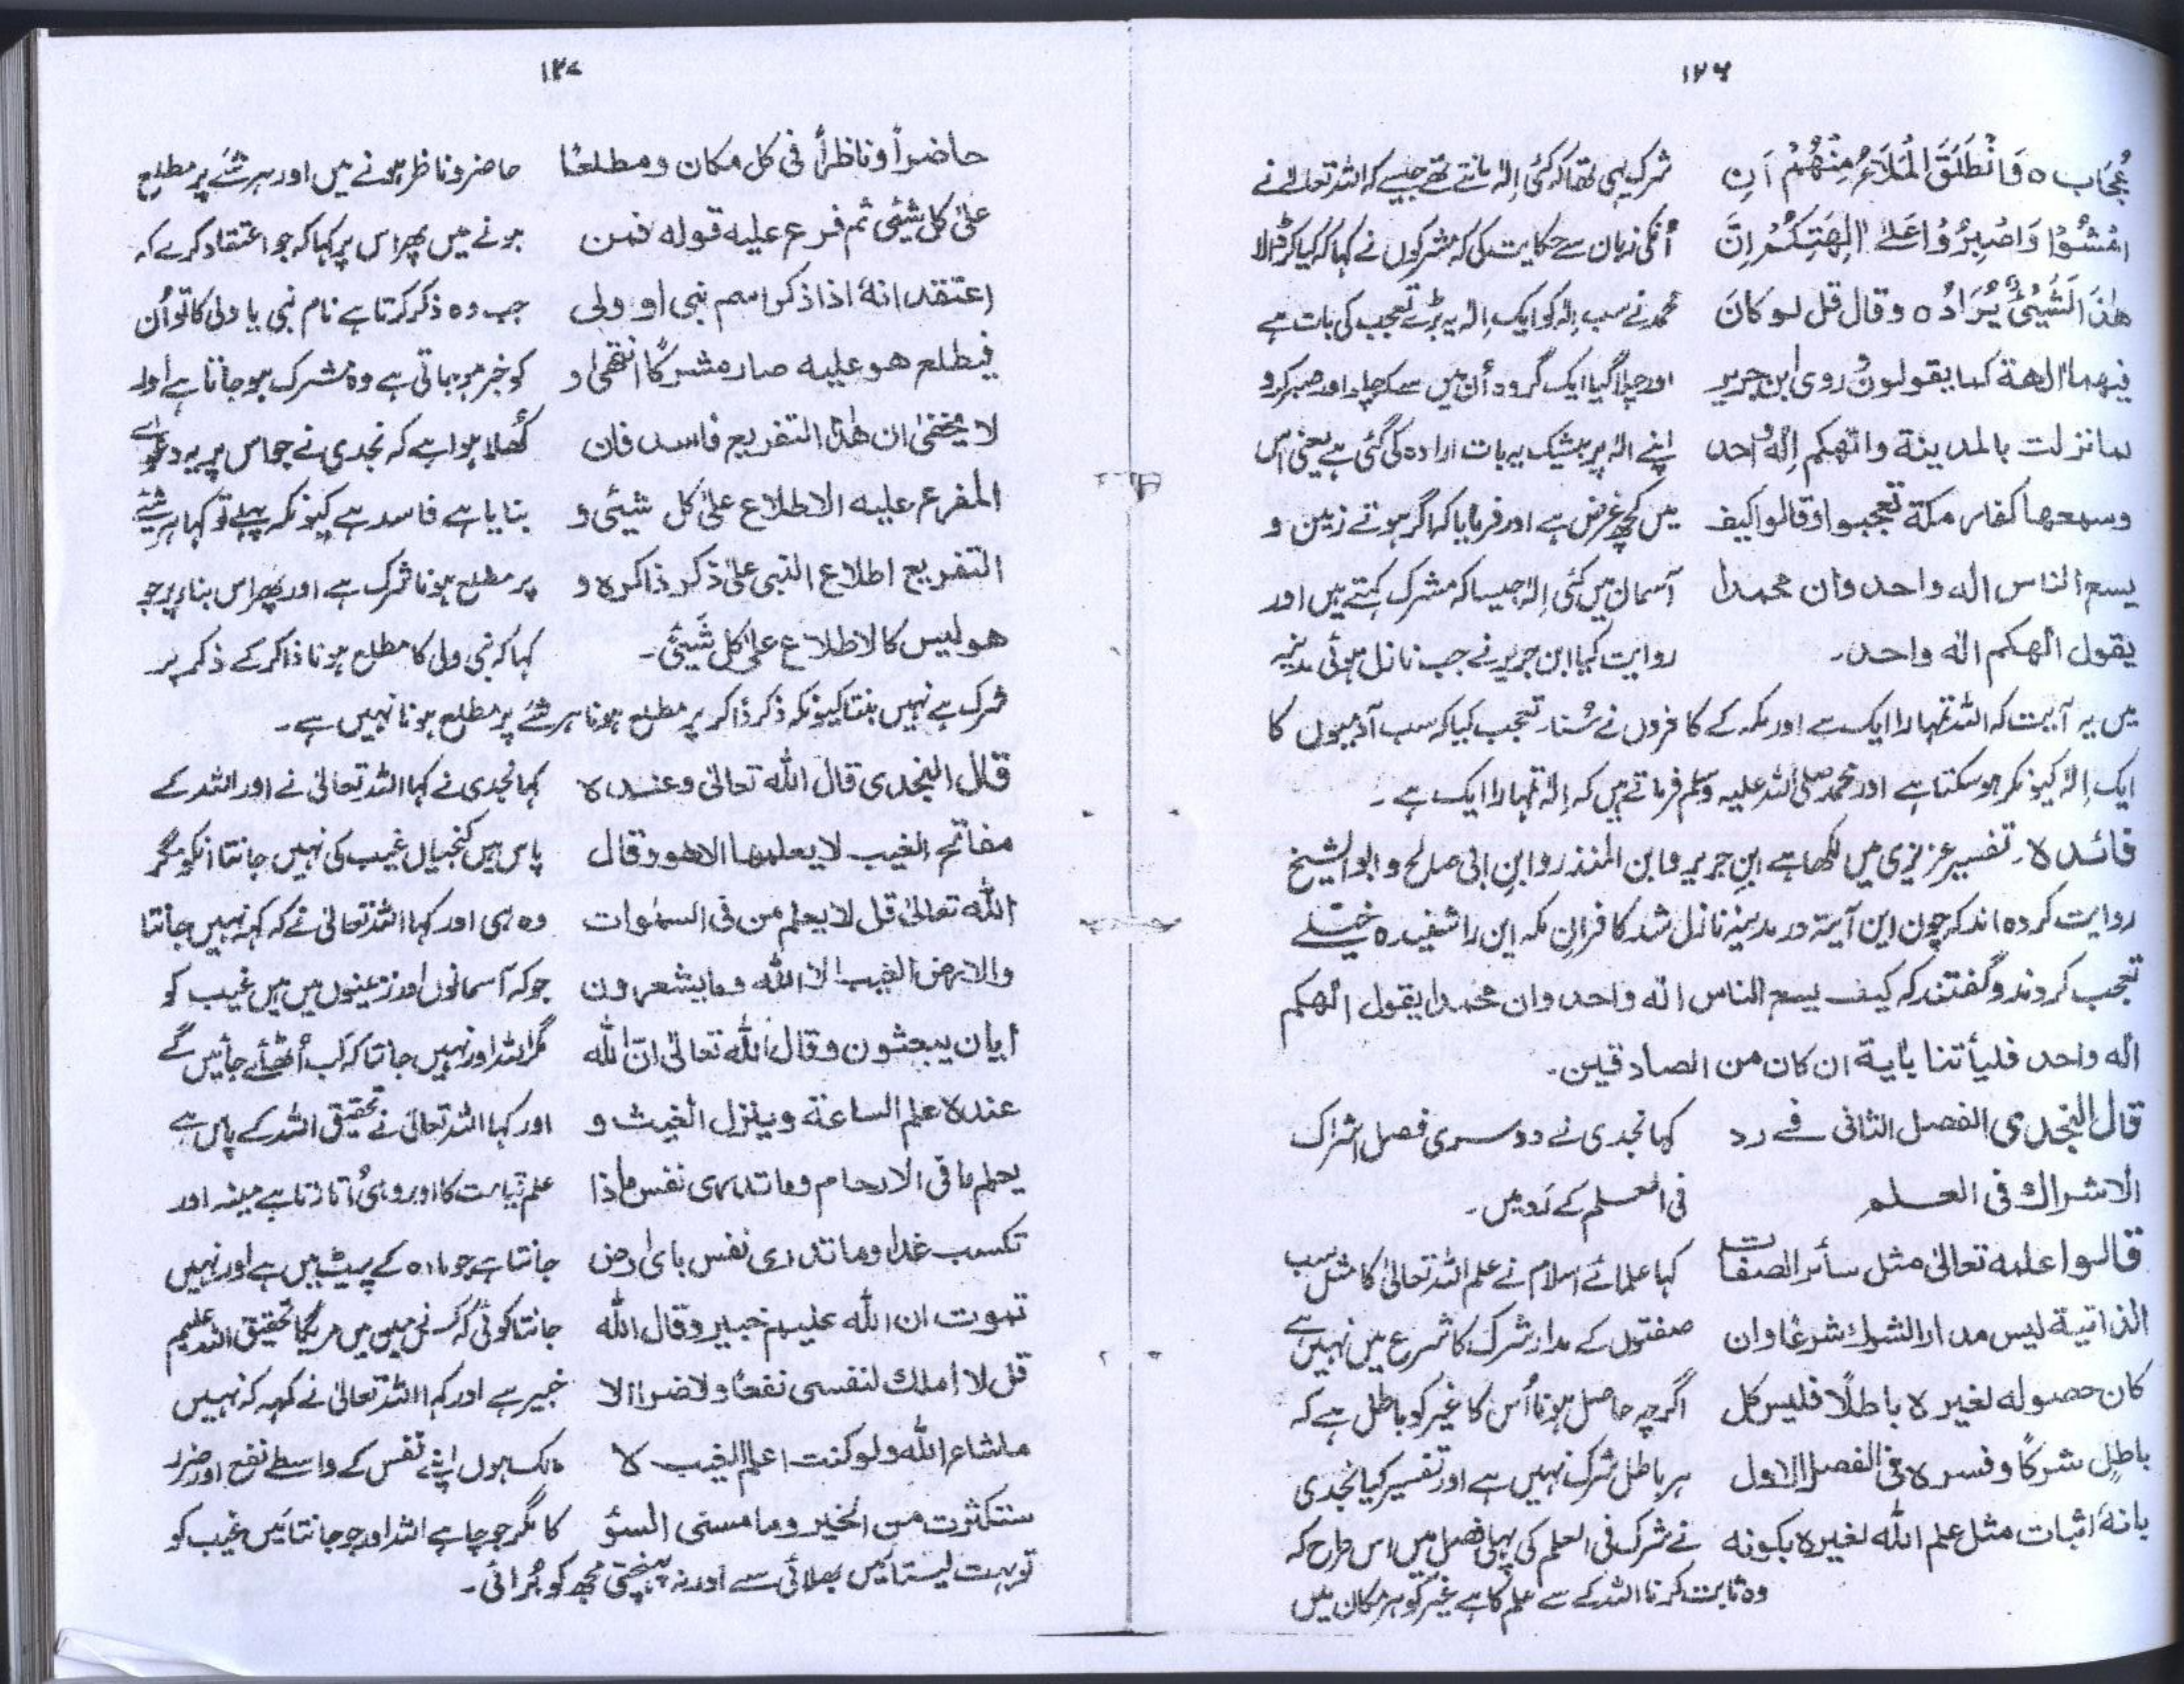 ۱۲۶
عُجَاب ہ وَانْطَلَقَ الْمَلَاءُ مِنْهُمْ اَنِ
امْشُوْا وَاصْبِرُوْا عَلٰے اٰلِهَتِكُمْ اِنَّ
هٰذَا لَشَيْئٌ يُّرَادُ ہ وقال قل لو كانَ
فيهما الهة كما يقولون روى ابن جرير
لما نزلت بالمدينة والهكم اِلٰهٌ واحد
وسمعها كفار مكة تعجبوا وقالوا كيف
يسع الناس اله واحد وان محمدا
يقول الهكم اله واحد۔
شرک یہی تھا کہ کئی اِلٰہ مانتے تھے جیسے کہ اللہ تعالےٰ نے
اُنکی زبان سے حکایت کی کہ مشرکوں نے کہا کہ کیا کر ڈالا
محمد نے سب اِلٰہ کو ایک اِلٰہ یہ بڑے تعجب کی بات ہے
اور چلا گیا ایک گروہ اُن میں سے کہ چلو اور صبر کرو
اپنے الٰہ پر بیشک یہ بات ارادہ کی گئی ہے یعنی اس
میں کچھ غرض ہے اور فرمایا کہ اگر ہوتے زمین و
آسمان میں کئی اِلٰہ جیسا کہ مشرک کہتے ہیں اور
روایت کیا ابن جریر نے جب نازل ہوئی مدینہ
میں یہ آیت کہ اللہ تمہارا ایک ہے اور مکہ کے کافروں نے سُنا۔ تعجب کیا کہ سب آدمیوں کا
ایک اِلٰہ کیونکر ہو سکتا ہے اور محمد صلی اللہ علیہ وسلم فرماتے ہیں کہ اِلٰہ تمہارا ایک ہے۔
فائدہ۔ تفسیر عزیزی میں لکھا ہے ابنِ جریر و ابن المنذر و ابنِ ابی صالح و ابوالشیخ
روایت کردہ اند کہ چون این آیتہ در مدینہ نازل شد کافرانِ مکہ این را شنیدہ خیلے
تعجب کردند و گفتند کہ کیف یسع الناس الٰہ واحد وان محمدا یقول الٰھکم
الٰہ واحد فلیأتنا بایة ان کان من الصادقین۔
قال النجدى الفصل الثانى فے رد
الاشراك فى العلم
کہا نجدی نے دوسری فصل اشراک
فی العلم کے رَد میں۔
قالوا علمه تعالىٰ مثل سائر الصفات
الذاتية ليس مدار الشرك شرعًا وان
كان حصوله لغيره باطلًا فليس كل
باطلٍ شركًا وفسره فى الفصل الاول
بانهٗ اثبات مثل علم الله لغيره بكونه
کہا علمائے اسلام نے علم اللہ تعالیٰ کا مثل سب
صفتوں کے مدار شرک کا شرع میں نہیں ہے
اگرچہ حاصل ہونا اُس کا غیر کو باطل ہے کہ
ہر باطل شرک نہیں ہے اور تفسیر کیا نجدی
نے شرک فی العلم کی پہلی فصل میں اس طرح کہ
وہ ثابت کرنا اللہ کے سے علم کا ہے غیر کو ہر مکان میں
۱۲۷
حاضراً وناظراً فى كل مكان ومطلعًا
علىٰ كل شيئى ثم فرع عليه قوله فمن
اعتقد انهٗ اذا ذكر اسم نبى او ولى
فيطلع هو عليه صار مشركًا انتهىٰ و
لا يخفىٰ ان هٰذا التفريع فاسد فان
المفرع عليه الاطلاع علىٰ كل شيئى و
التفريع اطلاع النبى علىٰ ذكر ذاكره و
هو ليس كالاطلاع علىٰ كل شَيئى۔
حاضر و ناظر ہونے میں اور ہر شئے پر مطلع
ہونے میں پھر اس پر کہا کہ جو اعتقاد کرے کہ
جب وہ ذکر کرتا ہے نام نبی یا ولی کا تو اُن
کو خبر ہو جاتی ہے وہ مشرک ہو جاتا ہے اور
کُھلا ہوا ہے کہ نجدی نے جو اس پر یہ دعوٰے
بنایا ہے فاسد ہے کیونکہ پہلے تو کہا ہر شئے
پر مطلع ہونا شرک ہے اور پھر اس بناء پر جو
کہا کہ نبی ولی کا مطلع ہونا ذاکر کے ذکر پر
شرک ہے نہیں بنتا کیونکہ ذکر ذاکر پر مطلع ہونا ہر شئے پر مطلع ہونا نہیں ہے۔
قال النجدى قال الله تعالىٰ وعنده
مفاتح الغيب لا يعلمها الا هو وقال
الله تعالىٰ قل لا يعلم من فى السمٰوات
والارض الغيب الا الله وما يشعرون
أيان يبعثون وقال الله تعالىٰ انّ الله
عنده علم الساعة وينزل الغيث و
يعلم ما فى الارحام وما تدرى نفس ماذا
تكسب غدا وما تدرى نفس باى ارض
تموت ان الله عليم خبير وقال الله
قل لا املك لنفسى نفعًا ولا ضرا الا
ماشاء الله ولو كنت اعلم الغيب لا
ستكثرت من الخير وما مسنى السؤ
کہا نجدی نے کہا اللہ تعالیٰ نے اور اللہ کے
پاس ہیں کنجیاں غیب کی نہیں جانتا انکو مگر
وہ ہی اور کہا اللہ تعالیٰ نے کہ کہہ نہیں جانتا
جو کہ آسمانوں اور زمینوں میں ہیں غیب کو
مگر اللہ اور نہیں جانتا کہ کب اُٹھائے جائیں گے
اور کہا اللہ تعالیٰ نے تحقیق اللہ کے پاس ہے
علم قیامت کا اور وہی اُتارتا ہے مینہ اور
جانتا ہے جو مادہ کے پیٹ میں ہے اور نہیں
جانتا کوئی کہ کس زمین میں مریگا تحقیق اللہ علیم
خبیر ہے اور کہا اللہ تعالیٰ نے کہہ کہ نہیں
مالک ہوں اپنے نفس کے واسطے نفع اور ضرر
کا مگر جو چاہے اللہ اور جو جانتا مَیں غیب کو
تو بہت لیتا مَیں بھلائی سے اور نہ پہنچتی مجھ کو بُرائی۔